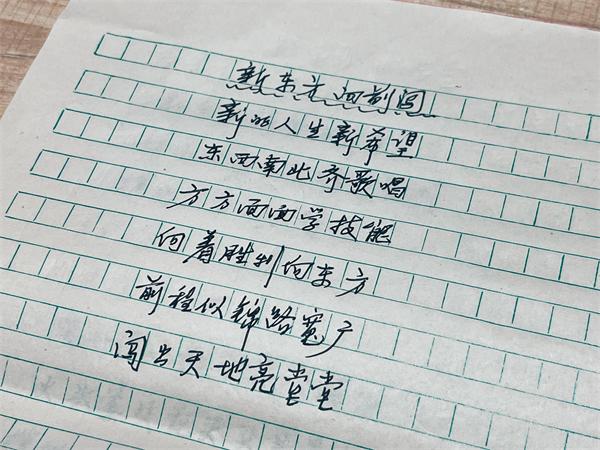 新东方向前闯
新的人生新希望
东西南北齐歌唱
方方面面学技能
向着胜利向东方
前程似锦路宽广
闯出天地亮堂堂